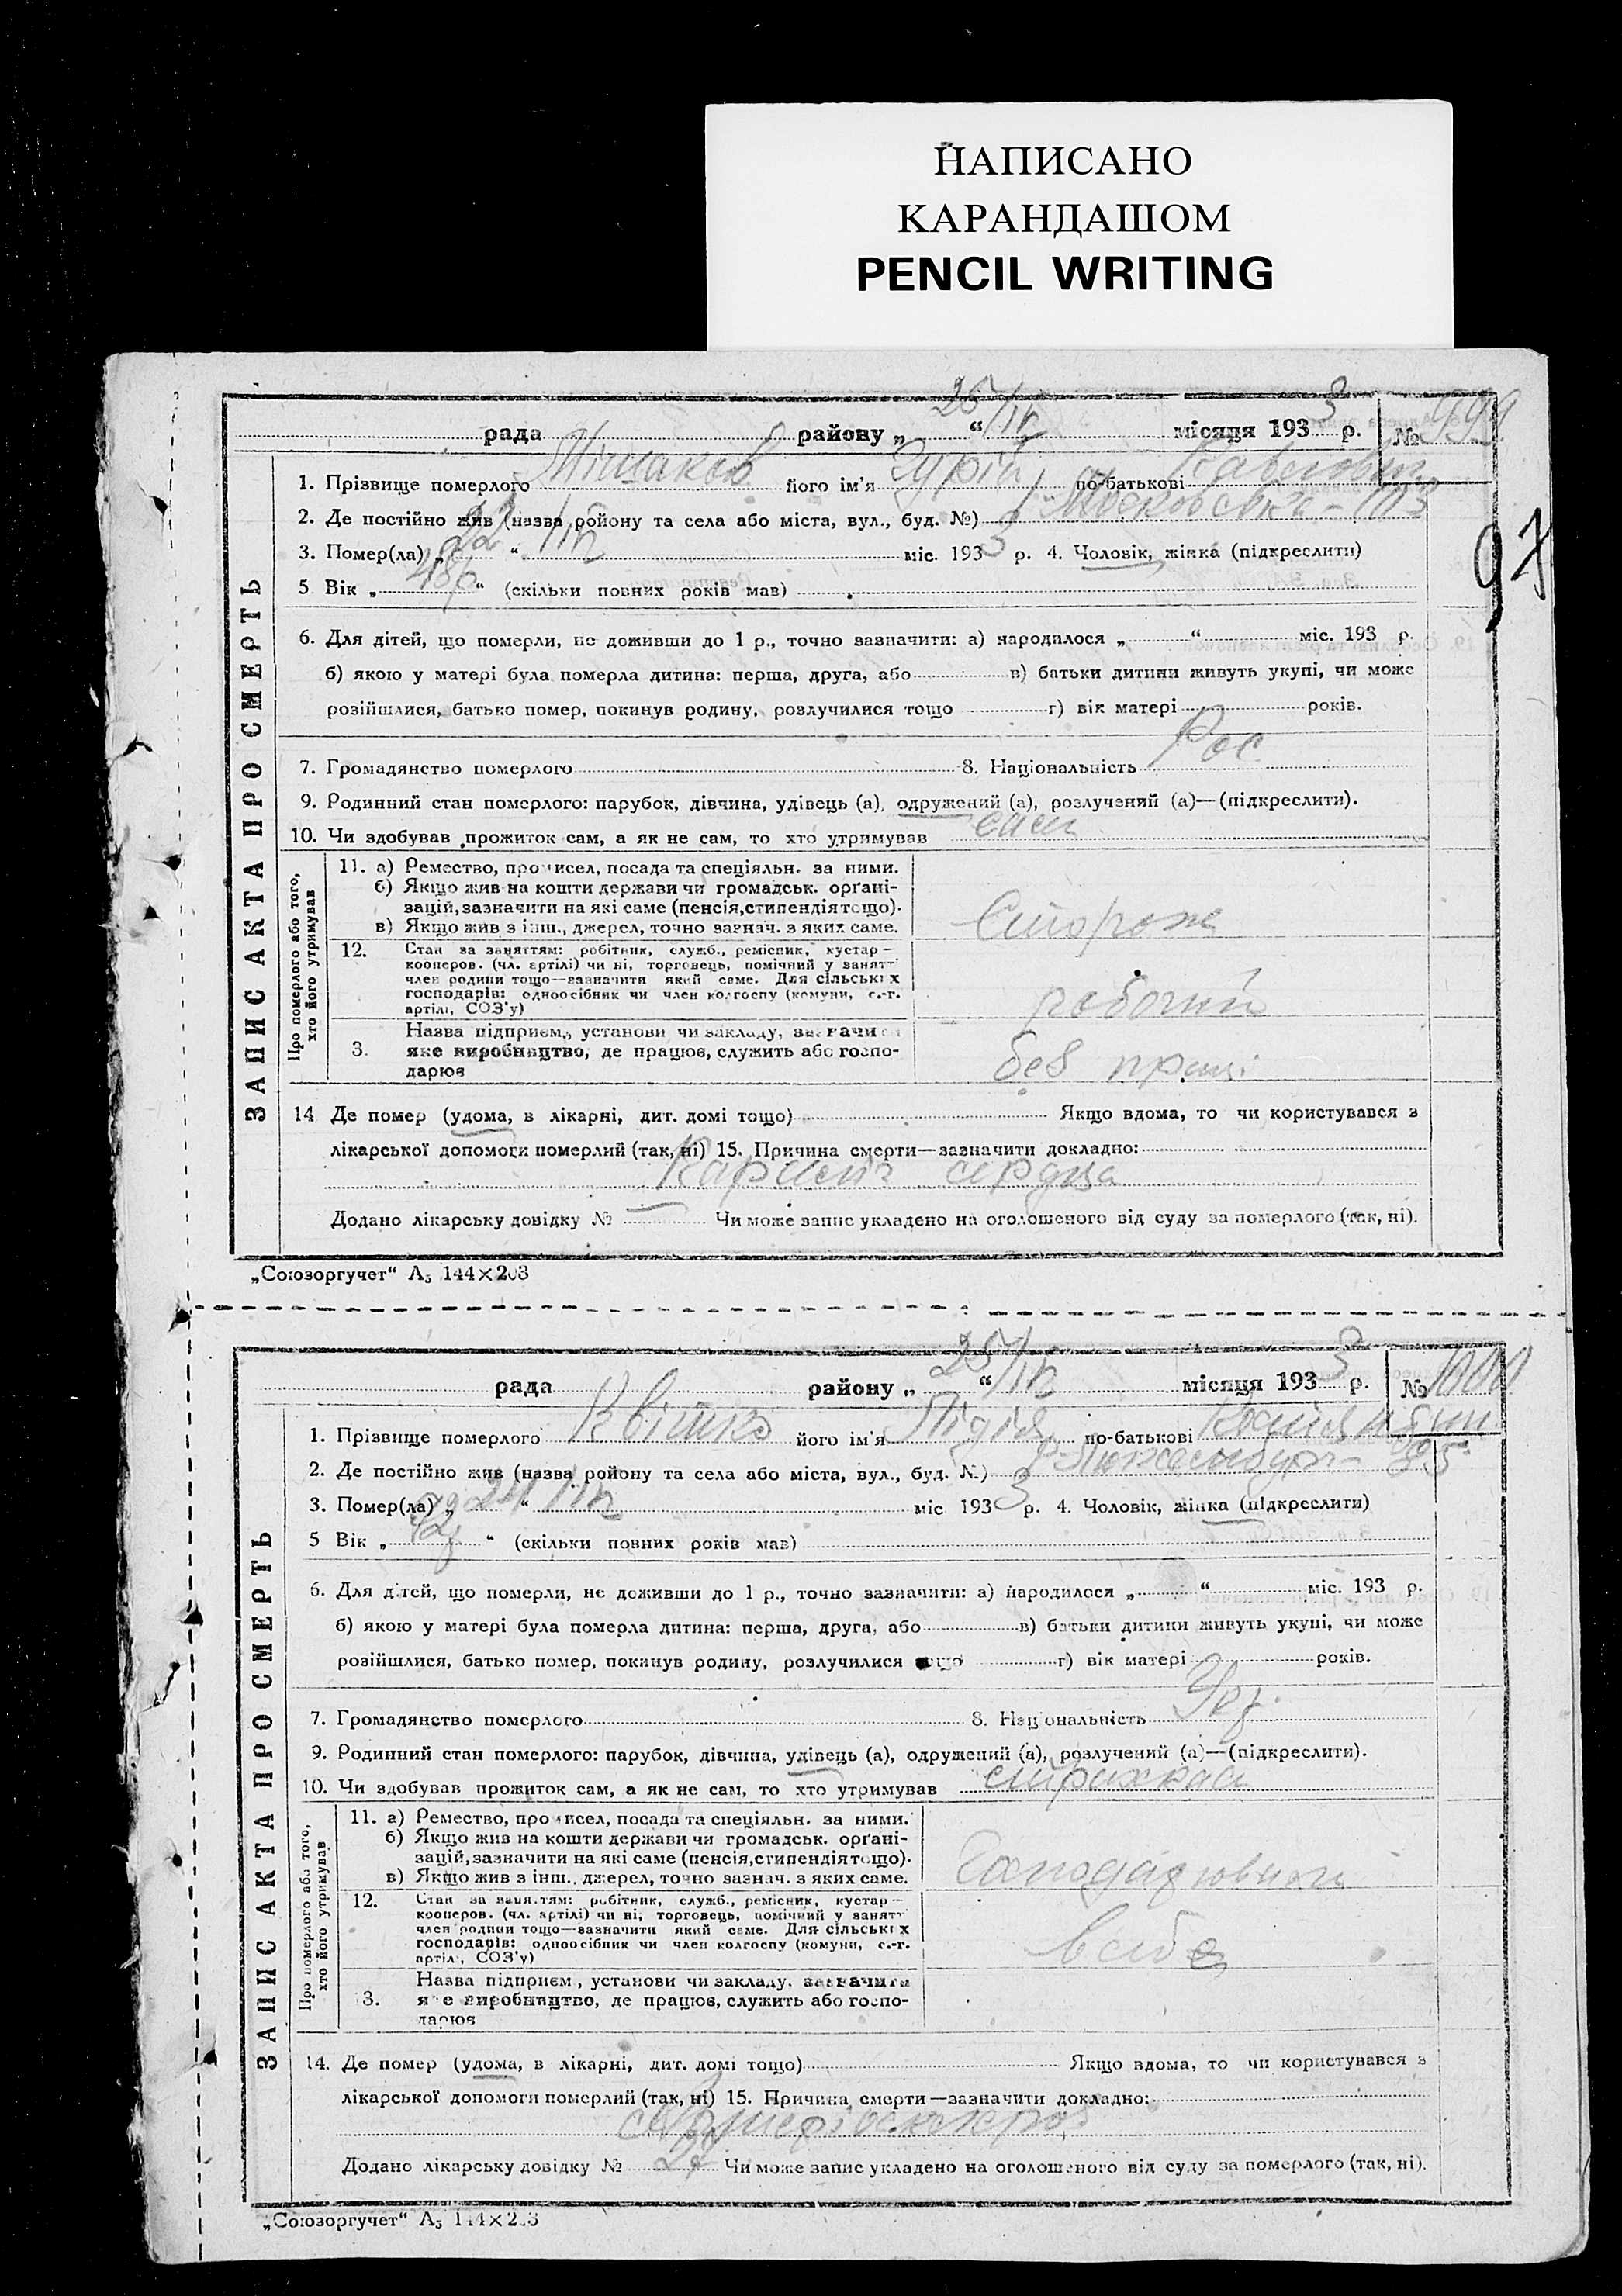 НАПИСАНО
КАРАНДАШОМ
PENCIL WRITING
97
ЗАПИС АКТА ПРО СМЕРТЬ
рада району „ 25/IV “ місяця 1933 р. № 999
1. Прізвище померлого його ім'я Гурій по-батькові
2. Де постійно жив (назва району та села або міста, вул., буд. №) Московська - 103
3. Помер(ла) „ 22 “ IV міс. 1933 р. 4. Чоловік, жінка (підкреслити)
5 Вік „ 48р “ (скільки повних років мав)
6. Для дітей, що померли, не доживши до 1 р., точно зазначити: а) народилося „ “ міс. 193 р.
б) якою у матері була померла дитина: перша, друга, або в) батьки дитини живуть укупі, чи може
розійшлися, батько помер, покинув родину, розлучилися тощо г) вік матері років.
7. Громадянство померлого 8. Національність Рос
9. Родинний стан померлого: парубок, дівчина, удівець (а), одружений (а), розлучений (а)—(підкреслити).
10. Чи здобував прожиток сам, а як не сам, то хто утримував сам
Про померлого або того, хто його утримував
11. а) Ремество, промисел, посада та спеціяльн. за ними.
б) Якщо жив на кошти держави чи громадськ. орґані-
зацій, зазначити на які саме (пенсія, стипендія тощо).
в) Якщо жив з інш., джерел, точно зазнач. з яких саме.
Сторож
12. Стан за заняттям: робітник, служб., ремісник, кустар—
кооперов. (чл. артілі) чи ні, торговець, помічний у занятт
член родини тощо—зазначити який саме. Для сільських
господарів: одноосібник чи член колгоспу (комуни, с.-г.
артілі, СОЗ'у)
робочий
3. Назва підприєм., установи чи закладу, зазначити
яке виробництво, де працює, служить або госпо-
дарює
без праці
14 Де помер (удома, в лікарні, дит. домі тощо) Якщо вдома, то чи користувався з
лікарської допомоги померлий (так, ні) 15. Причина смерти—зазначити докладно:
сердца
Додано лікарську довідку № Чи може запис укладено на оголошеного від суду за померлого (так, ні).
„Союзоргучет“ А₅ 144×203
ЗАПИС АКТА ПРО СМЕРТЬ
рада району „ 25/IV “ місяця 1933 р. № 1000
1. Прізвище померлого Квітко його ім'я Лідія по-батькові
2. Де постійно жив (назва району та села або міста, вул., буд. №)
3. Помер(ла) „ 24 “ IV міс 1933 р. 4. Чоловік, жінка (підкреслити)
5 Вік „ “ (скільки повних років мав)
6. Для дітей, що померли, не доживши до 1 р., точно зазначити: а) народилося „ “ міс. 193 р.
б) якою у матері була померла дитина: перша, друга, або в) батьки дитини живуть укупі, чи може
розійшлися, батько помер, покинув родину, розлучилися тощо г) вік матері років.
7. Громадянство померлого 8. Національність
9. Родинний стан померлого: парубок, дівчина, удівець (а), одружений (а), розлучений (а)—(підкреслити).
10. Чи здобував прожиток сам, а як не сам, то хто утримував страхкаса
Про померлого або того, хто його утримував
11. а) Ремество, промисел, посада та спеціяльн. за ними.
б) Якщо жив на кошти держави чи громадськ. орґані-
зацій, зазначити на які саме (пенсія, стипендія тощо).
в) Якщо жив з інш., джерел, точно зазнач. з яких саме.
12. Стан за заняттям: робітник, служб., ремісник, кустар—
кооперов. (чл. артілі) чи ні, торговець, помічний у занятт
член родини тощо—зазначити який саме. Для сільських
господарів: одноосібник чи член колгоспу (комуни, с.-г.
артілі, СОЗ'у)
в себе
3. Назва підприєм, установи чи закладу, зазначити
яке виробництво, де працює, служить або госпо-
дарює
14. Де помер (удома, в лікарні, дит. домі тощо) Якщо вдома, то чи користувався з
лікарської допомоги померлий (так, ні) 15. Причина смерти—зазначити докладно:
Додано лікарську довідку № 27 Чи може запис укладено на оголошеного від суду за померлого (так, ні).
„Союзоргучет“ А₅ 144×203